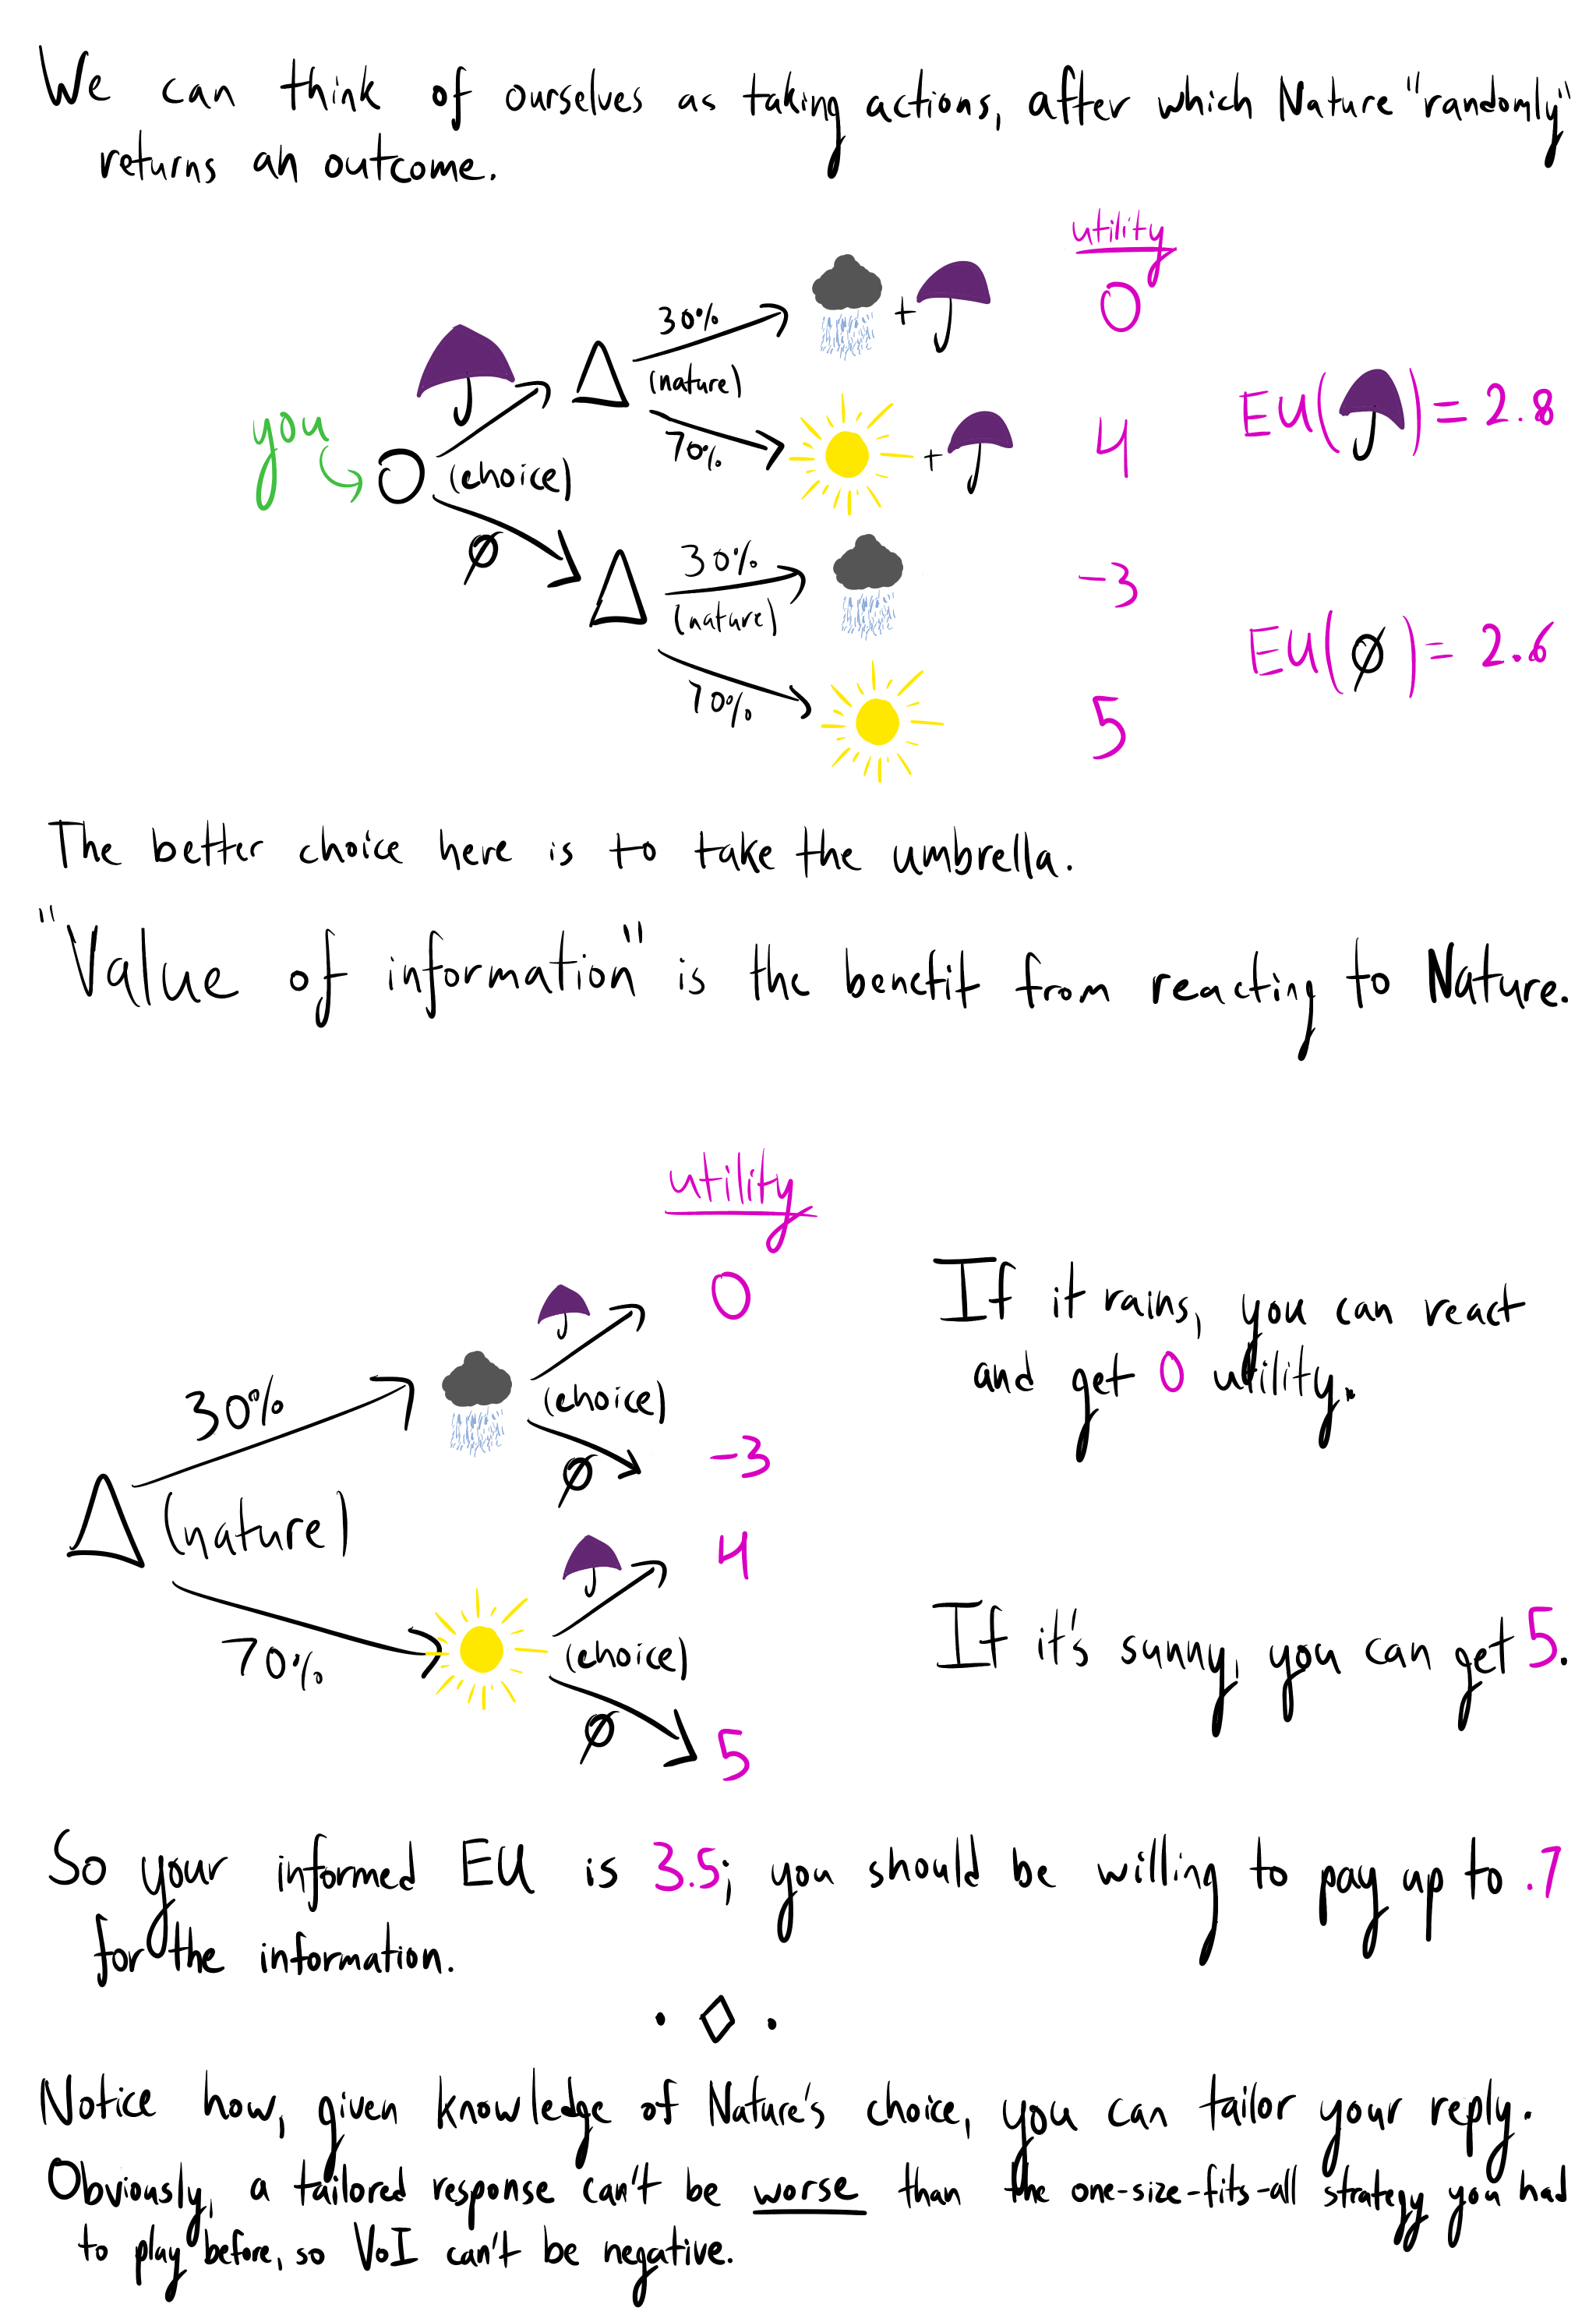 We can think of ourselves as taking actions, after which Nature "randomly"
returns an outcome.
utility
30%
(nature)
+
0
70%
+
4
EU( ) = 2.8
you
(choice)
Ø
30%
(nature)
-3
70%
5
EU(Ø) = 2.6
The better choice here is to take the umbrella.
"Value of information" is the benefit from reacting to Nature.
utility
0
30%
(choice)
Ø
-3
(nature)
4
70%
(choice)
Ø
5
If it rains, you can react
and get 0 utility.
If it's sunny, you can get 5.
So your informed EU is 3.5; you should be willing to pay up to .7
for the information.
Notice how, given knowledge of Nature's choice, you can tailor your reply.
Obviously, a tailored response can't be worse than the one-size-fits-all strategy you had
to play before, so VoI can't be negative.